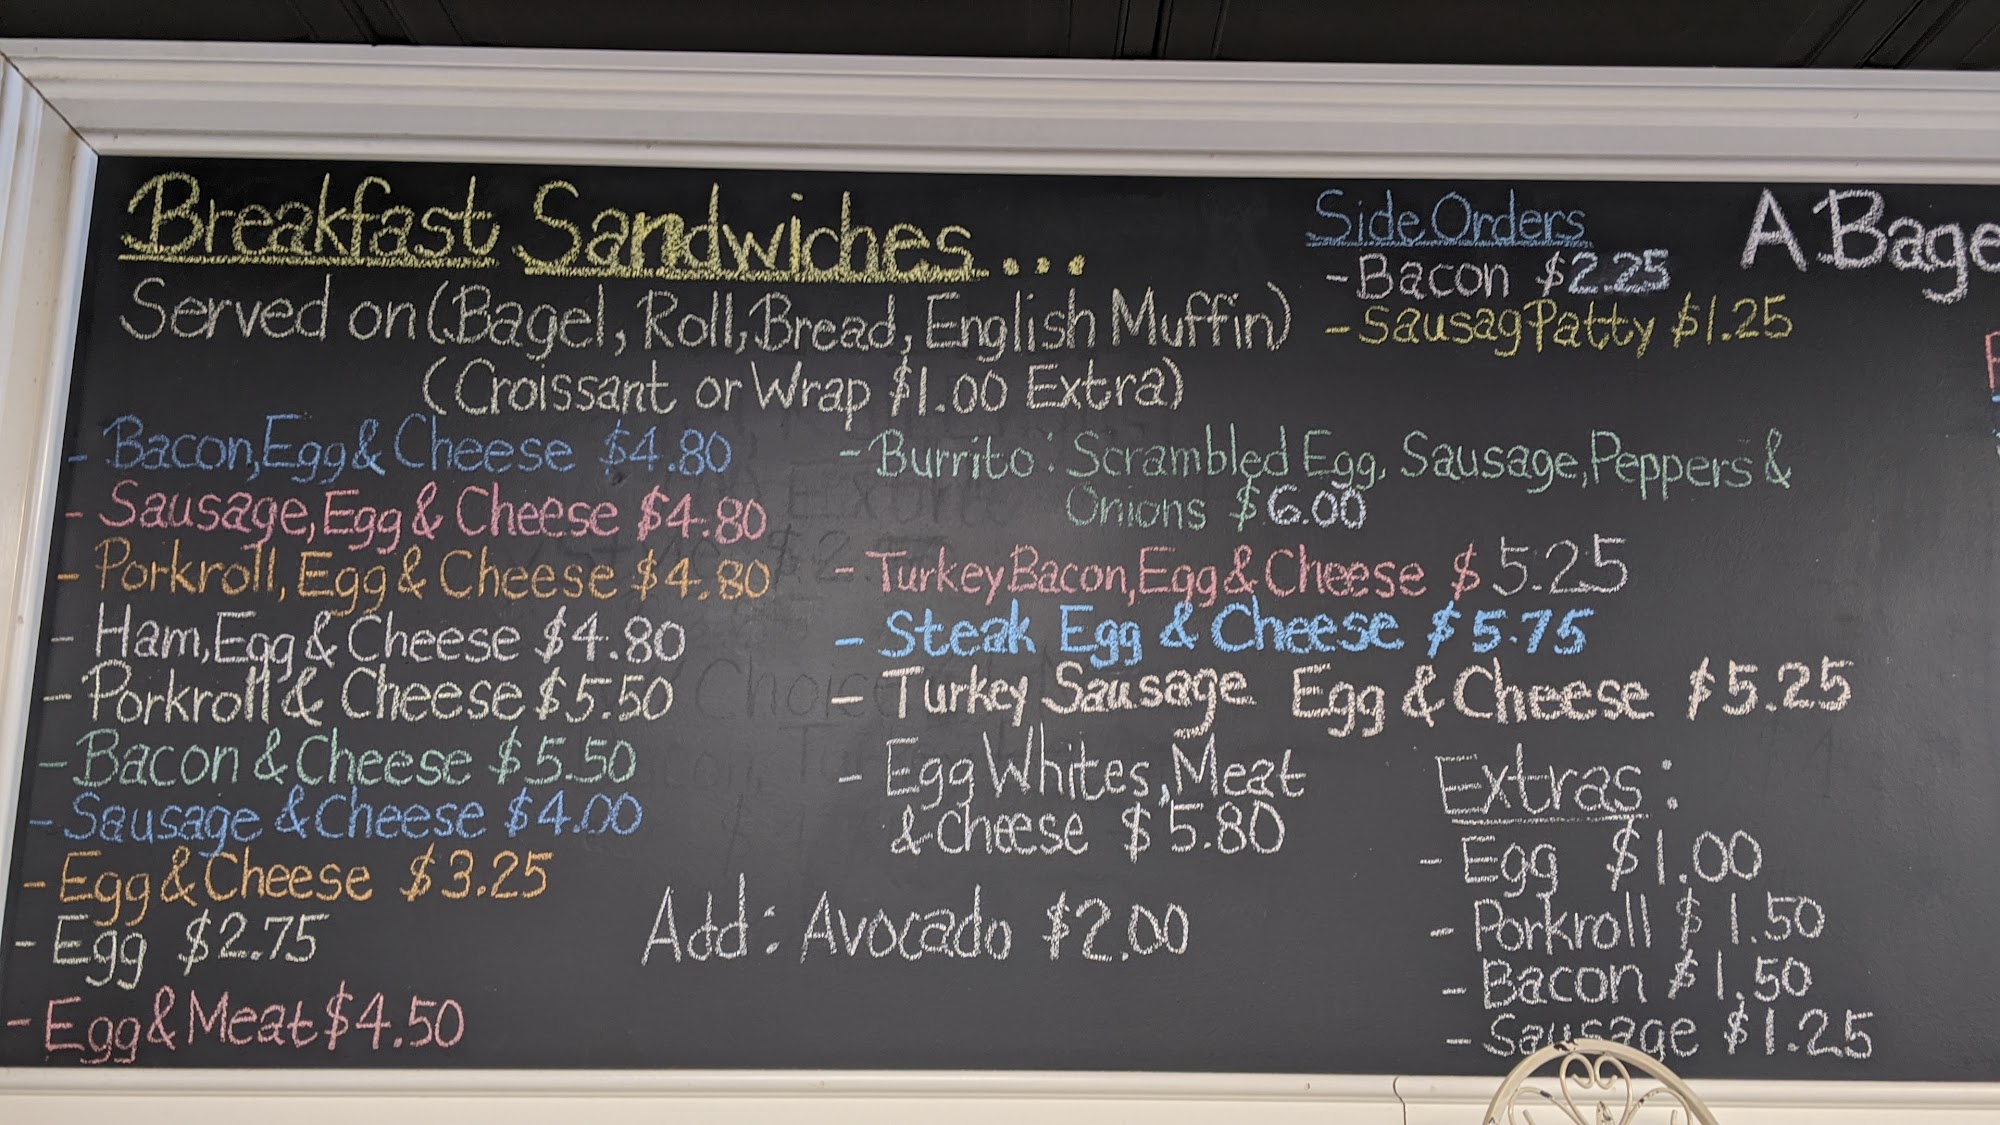 Breakfast Sandwiches...
Served on (Bagel, Roll, Bread, English Muffin)
(Croissant or Wrap $1.00 Extra)
- Bacon, Egg & Cheese $4.80
- Sausage, Egg & Cheese $4.80
- Porkroll, Egg & Cheese $4.80
- Ham, Egg & Cheese $4.80
- Porkroll & Cheese $5.50
- Bacon & Cheese $5.50
- Sausage & Cheese $4.00
- Egg & Cheese $3.25
- Egg $2.75
- Egg & Meat $4.50
- Burrito: Scrambled Egg, Sausage, Peppers &
Onions $6.00
- Turkey Bacon, Egg & Cheese $5.25
- Steak Egg & Cheese $5.75
- Turkey Sausage Egg & Cheese $5.25
- Egg Whites, Meat
& Cheese $5.80
Add: Avocado $2.00
Side Orders
- Bacon $2.25
- Sausag Patty $1.25
Extras:
- Egg $1.00
- Porkroll $1.50
- Bacon $1.50
- Sausage $1.25
A Bage